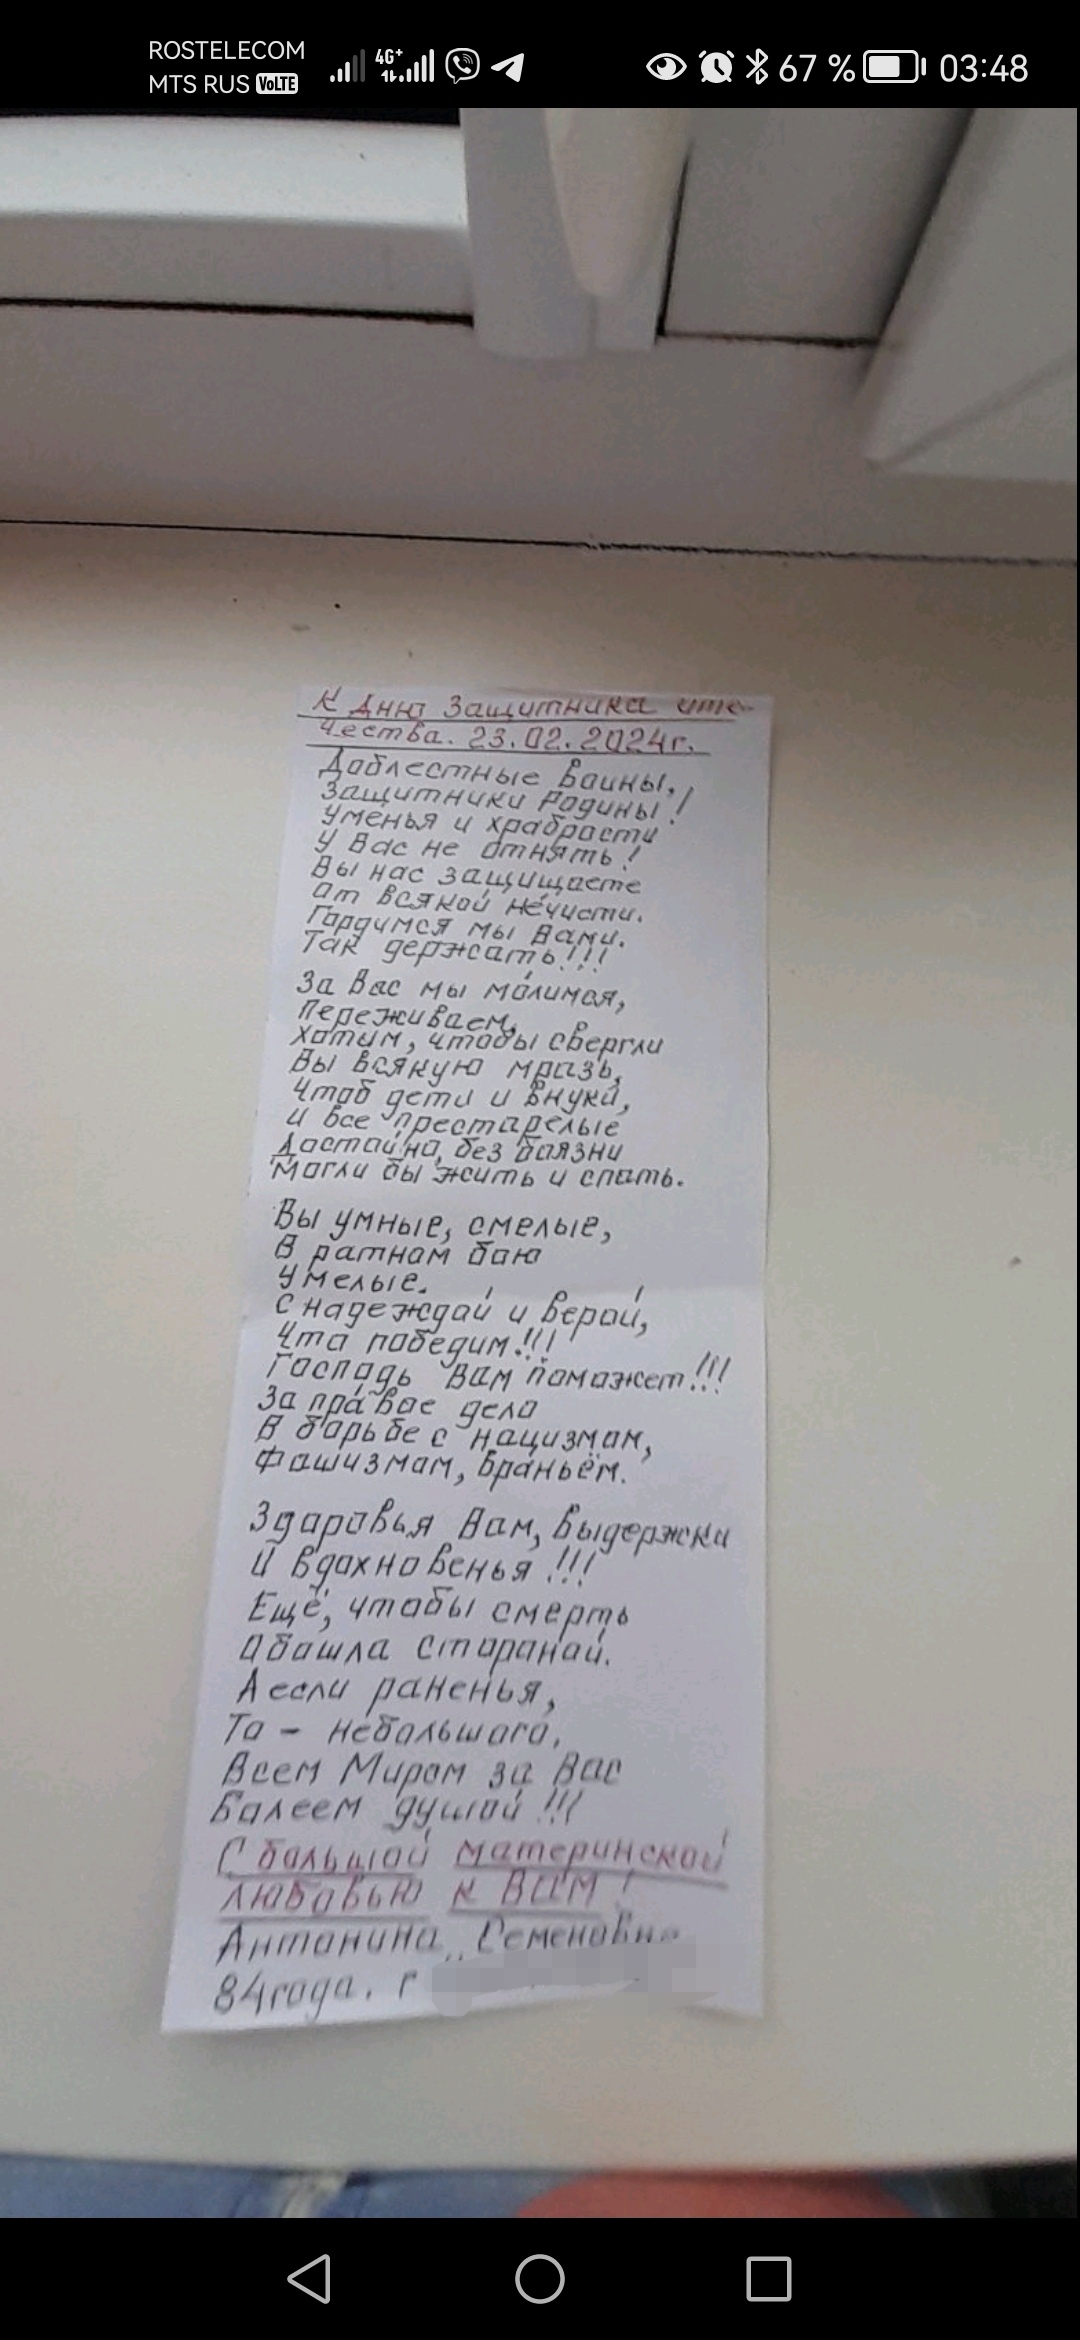 ROSTELECOM
MTS RUS VoLTE
4G+
67 % 03:48
К Дню Защитника Оте-
чества. 23.02.2024г.
Доблестные воины,
Защитники Родины!
Уменья и храбрости
У Вас не отнять!
Вы нас защищаете
От всякой нечисти.
Гордимся мы Вами.
Так держать!!!
За Вас мы молимся,
Переживаем,
Хотим, чтобы свергли
Вы всякую мразь,
Чтоб дети и внуки,
И все престарелые
Достойно, без боязни
Могли бы жить и спать.
Вы умные, смелые,
В ратном бою
Умелые.
С надеждой и верой,
Что победим!!!
Господь Вам поможет!!!
За правое дело
В борьбе с нацизмом,
Фашизмом, враньём.
Здоровья Вам, выдержки
И вдохновенья!!!
Ещё, чтобы смерть
Обошла стороной.
А если раненья,
То - небольшого,
Всем Миром за Вас
Болеем душой!!!
С большой материнской
любовью к Вам!
Антонина Семеновна
84года. г